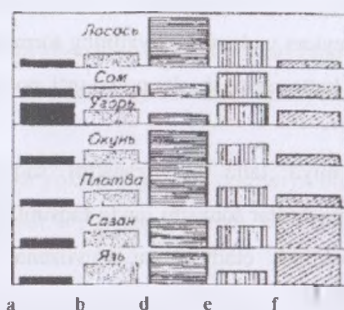 Лосось
Сом
Угорь
Окунь
Плотва
Сазан
Язь
a b d e f